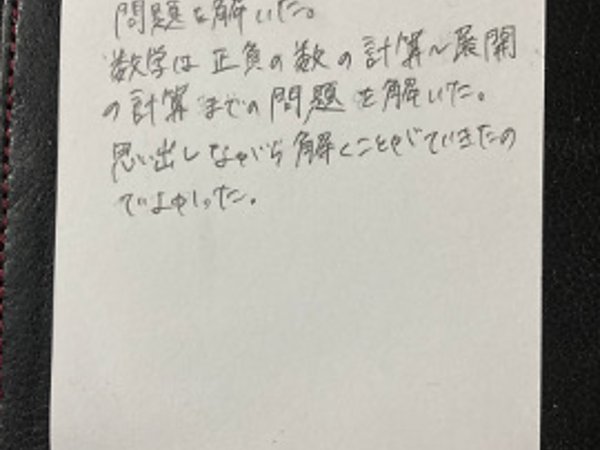 問題を解いた。
数学は正負の数の計算～展開
の計算までの問題を解いた。
思い出しながら解くことができたの
でよかった。